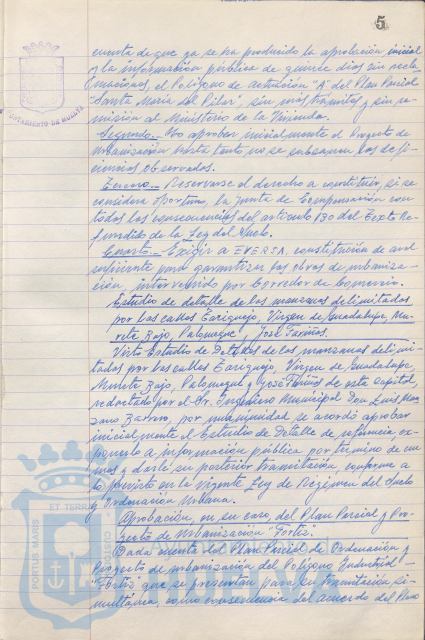 5
AYUNTAMIENTO DE HUELVA
cuenta de que ya se ha producido la aprobación inicial
y la información pública de quince días sin recla-
maciones, el Polígono de actuación "A" del Plan Parcial
"Santa María del Pilar", sin más trámites y sin re-
misión al Ministerio de la Vivienda.
Segundo.- No aprobar inicialmente el Proyecto de
Urbanización hasta tanto no se subsanen las defi-
ciencias observadas.
Tercero.- Reservarse el derecho a constituir, si se
considera oportuno, la Junta de Compensación con
todas las consecuencias del artículo 130 del Texto Re-
fundido de la Ley del Suelo.
Cuarto.- Exigir a EVERSA, constitución de aval
suficiente para garantizar las obras de urbaniza-
ción, intervenido por Corredor de Comercio.
Estudio de detalle de las manzanas delimitadas
por las calles Cariguejo, Virgen de Guadalupe, Mu-
rete Bajo, Palomeque y José Fariñas.
Visto Estudio de Detalles de las manzanas delimi-
tadas por las calles Cariguejo, Virgen de Guadalupe,
Murete Bajo, Palomeque y José Fariñas de esta Capital,
redactado por el Sr. Ingeniero Municipal Don Luis Man-
zano por unanimidad se acordó aprobar
inicialmente el Estudio de Detalle de referencia, ex-
ponerlo a información pública por término de un
mes y darle su posterior tramitación, conforme a
lo previsto en la vigente Ley de Régimen del Suelo
y Ordenación Urbana.
Aprobación, en su caso, del Plan Parcial y Pro-
yecto de Urbanización "Fortiz".
Dada cuenta del Plan Parcial de Ordenación y
Proyecto de urbanización del Polígono Industrial
"Fortiz" que se presentan para su tramitación si-
multánea, como consecuencia del acuerdo del Pleno
PORTUS MARIS ET TERRAE CUSTODIA